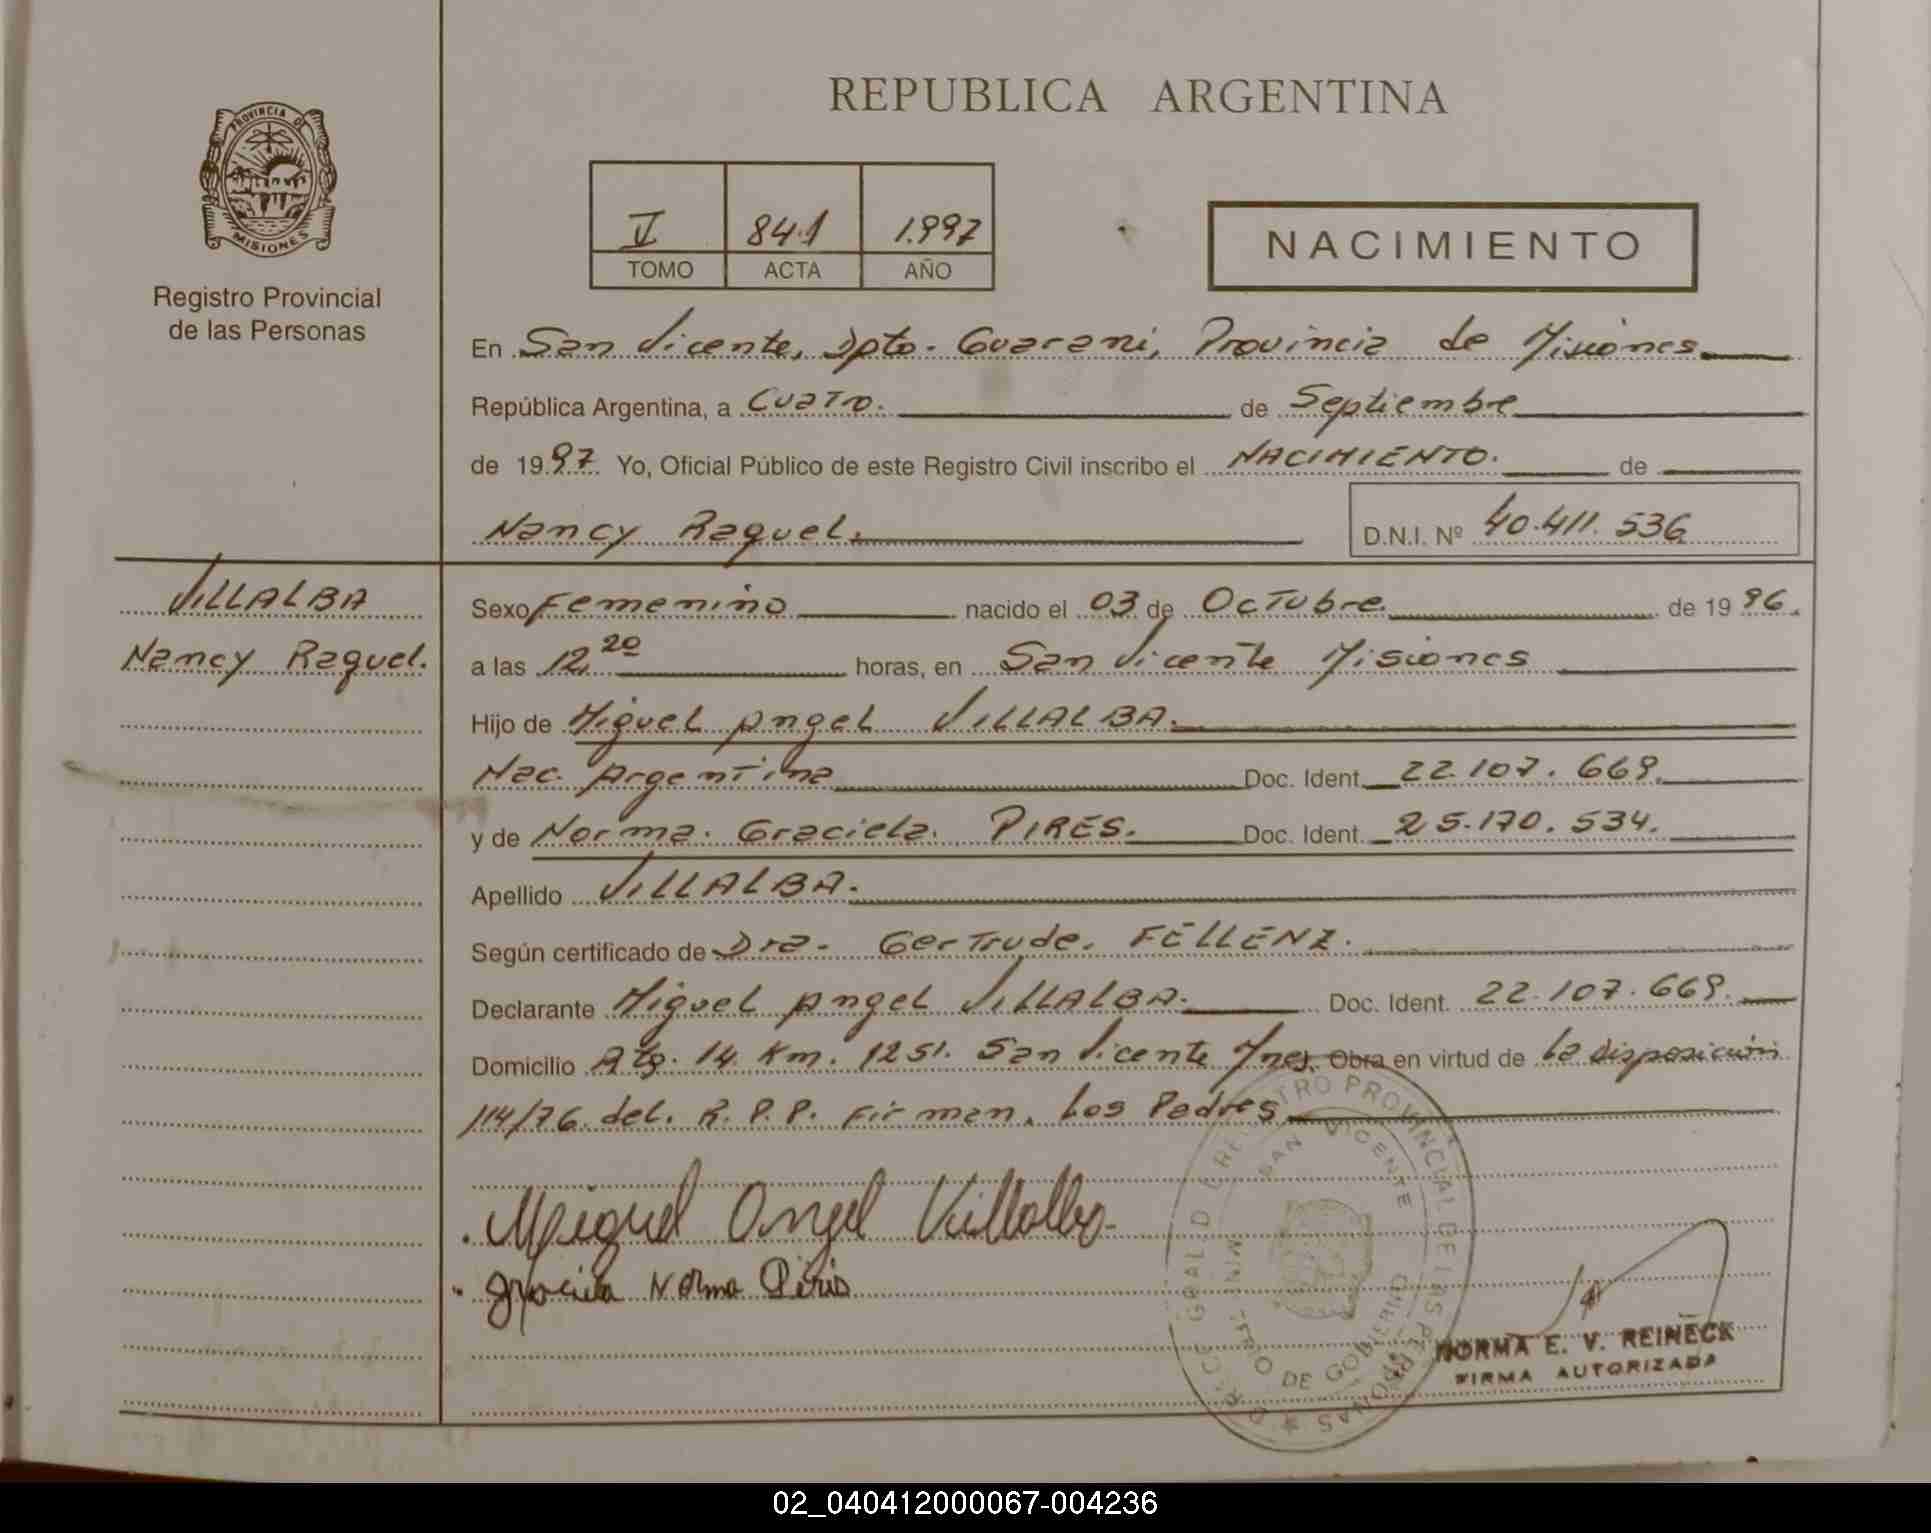 REPUBLICA ARGENTINA
PROVINCIA DE
MISIONES
Registro Provincial
de las Personas
V 841 1.997
TOMO ACTA AÑO
NACIMIENTO
En San Vicente, Dpto. Guarani, Provincia de Misiones
República Argentina, a Cuatro. de Septiembre
de 1997. Yo, Oficial Público de este Registro Civil inscribo el NACIMIENTO. de
Nancy Raquel. D.N.I. Nº 40.411.536
VILLALBA
Nancy Raquel.
Sexo Femenino nacido el 03 de Octubre. de 19 96.
a las 12,20 horas, en San Vicente Misiones
Hijo de Miguel Angel VILLALBA.
Nac. Argentina Doc. Ident. 22.107.669.
y de Norma. Graciela. PIRES. Doc. Ident. 25.170.534.
Apellido VILLALBA.
Según certificado de Dra. Gertrude. FELLENZ.
Declarante Miguel Angel VILLALBA. Doc. Ident. 22.107.669.
Domicilio 14 Km. 1251. San Vicente Mnes. Obra en virtud de La disposición
114/76 del. R.P.P. Firman. Los Padres
Miguel Angel Villalba
Graciela Norma Piris
REGISTRO PROVINCIAL DE LAS PERSONAS
SAN VICENTE
MINISTERIO DE GOBIERNO
NORMA E. V. REINECK
FIRMA AUTORIZADA
02_040412000067-004236